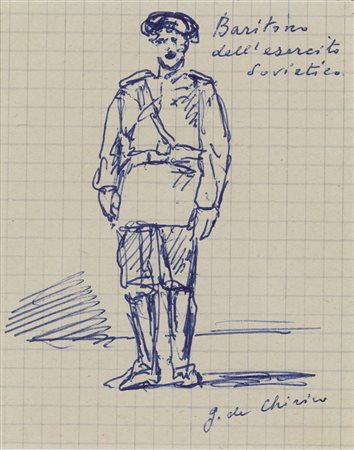 Baritono
dell'esercito
Sovietico.
g. de Chirico